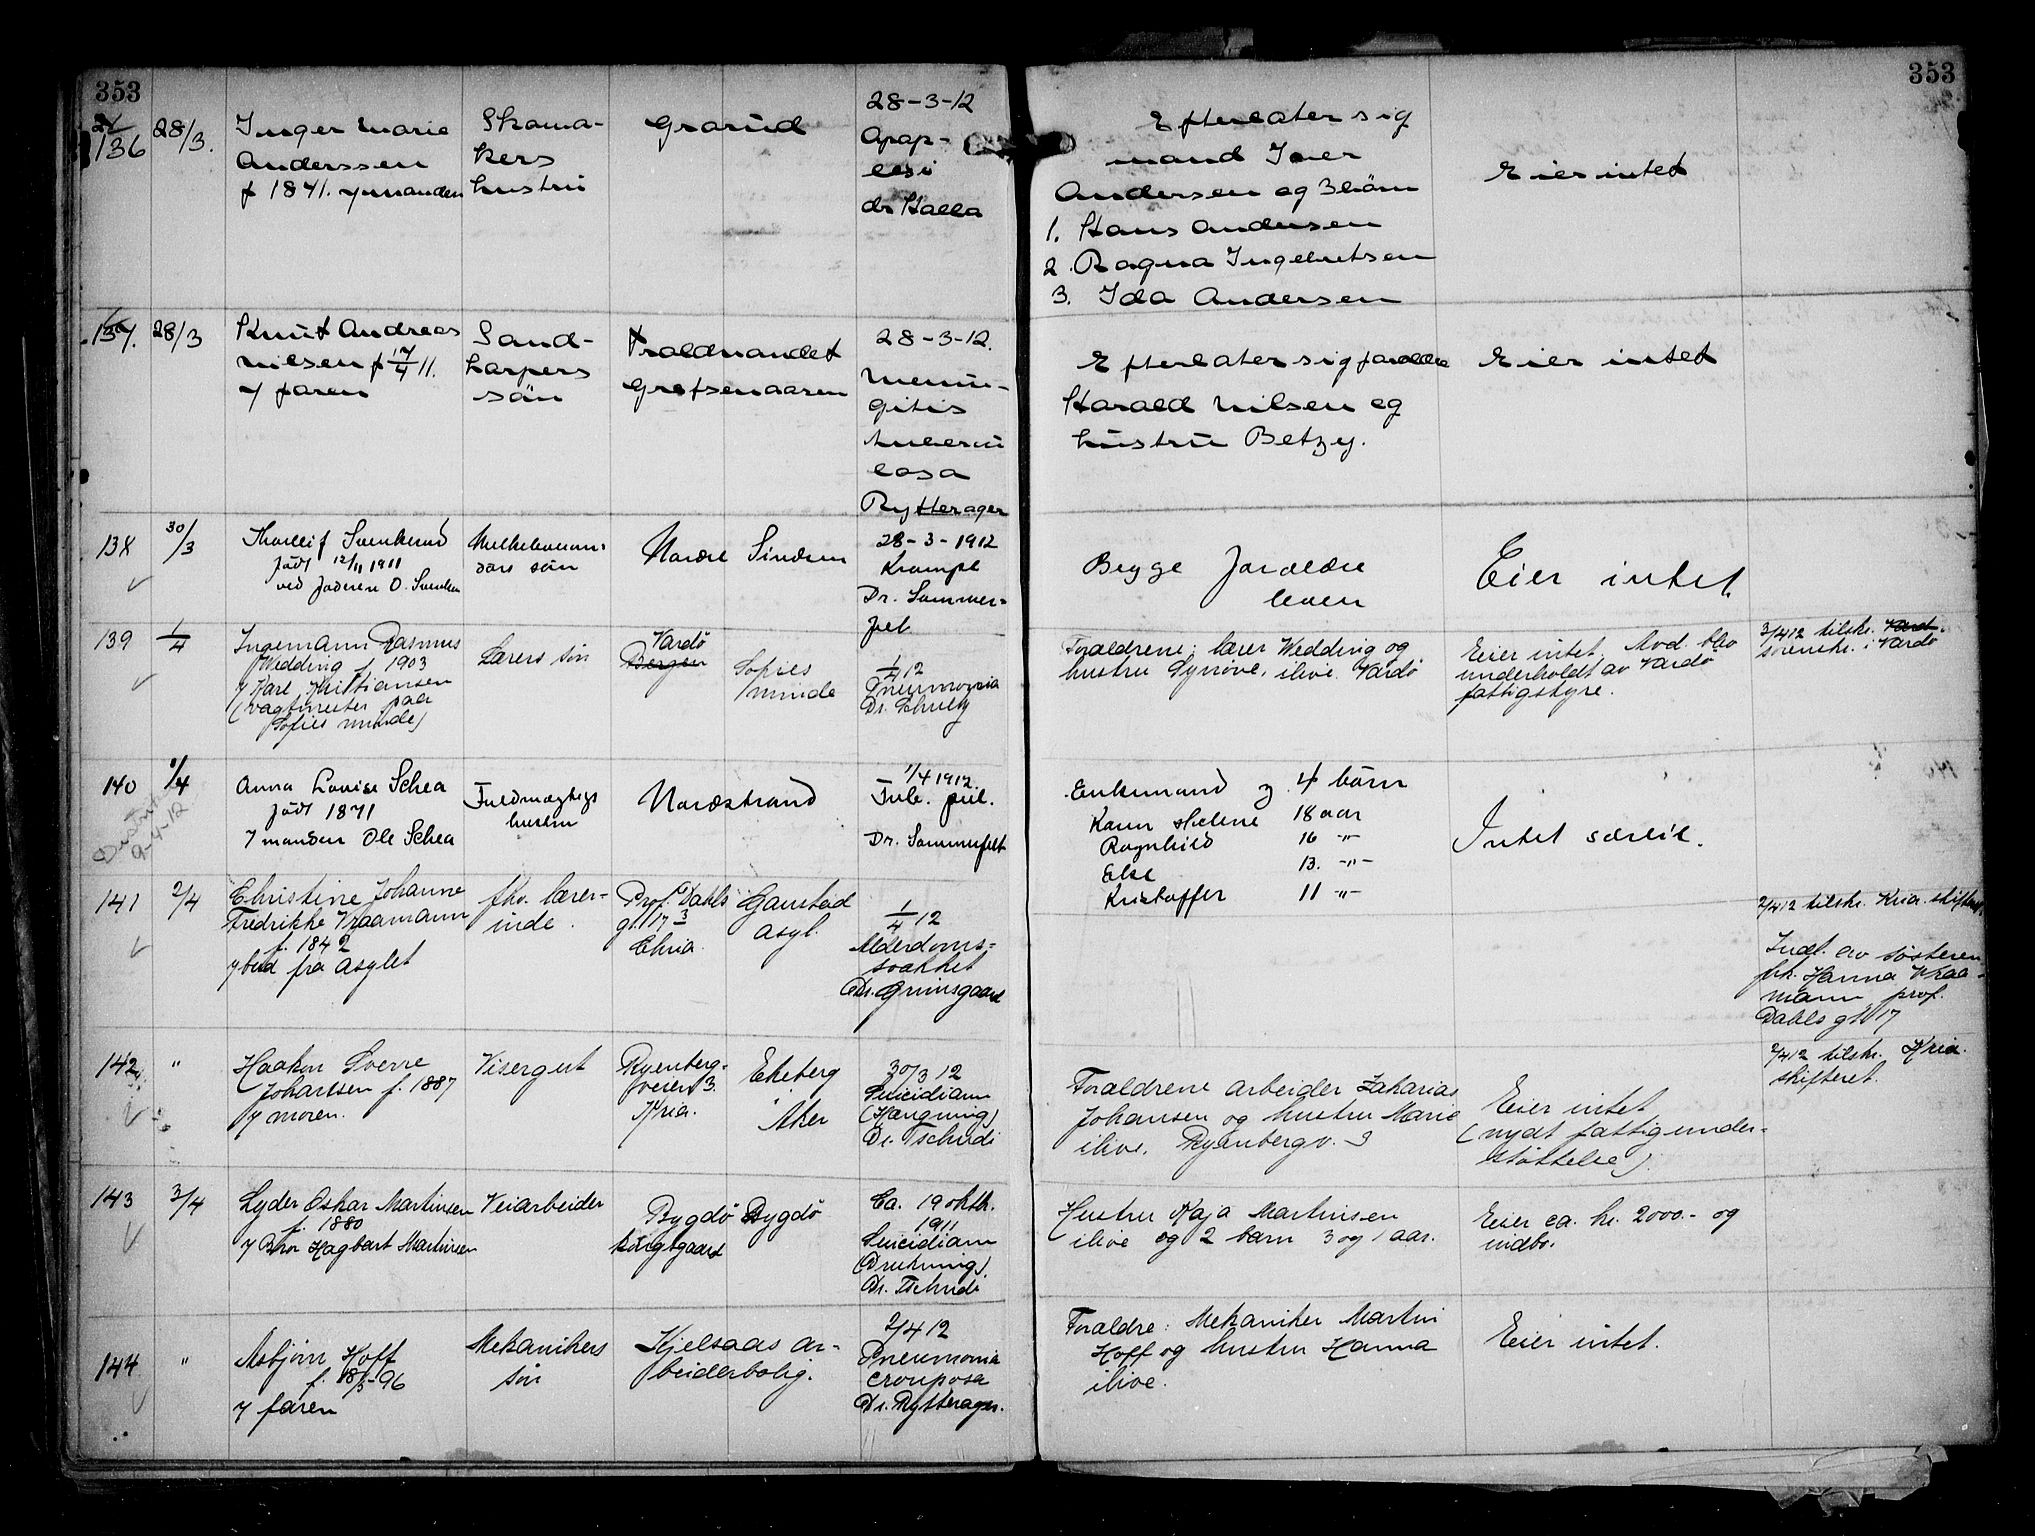 353
353
136
28/3.
Inger Marie
Anderssen
f 1841. v/manden
Skoma-
kers
hustru
Grorud
28-3-12
Apop-
lesi
dr Halla
Efterlater sig
mand Iver
Andersen og 3 börn
1. Hans Andersen
2. Ragna Ingebretsen
3. Ida Andersen
Eier intet
137.
28/3
Knut Andreas
Nilsen f 17/4 11.
v/ faren
Sand-
harpers
sön
Troldvandet
Grefsenaasen
28-3-12.
Menin-
gitis
tubercu
losa
Rytterager
Efterlater sig foreldre
Harald Nilsen og
hustru Betzy.
Eier intet
138
30/3
Thorleif Svenkerud
født 12/11 1911
ved faderen O. Svenker
sön
Nordre Sinsen
28-3-1912
Krampe
Dr. Sommer-
felt
Begge forældre
lever
Eier intet.
139
1/4
Ingemann Rasmus
Wedding f. 1903
v/ Karl Kristiansen
(vagtmester paa
Sofies minde)
Lærers søn
Vardö
Bergen
Sofies
minde
1/4 12
Pneumonia
Dr. Schultz
Forældrene: lærer Wedding og
hustru Synöve, ilive. Vardö
Eier intet. Avd. blev
underholdt av Vardö
fattigstyre.
3/4 12 tilskr. Vard.
sorenskr. i Vardö
140
1/4
9-4-12
Anna Lovise Schea
født 1871
v/ manden Ole Schea
Fuldmægtigs
hustru
Nordstrand
1/4 1912.
Tub. pul.
Dr. Sommerfelt
Enkemand og 4 børn
Karen Helene 18 aar
Ragnhild 16 -"-
Else 13. -"-
Kristoffer 11 -"-
Intet særeie.
141
2/4
Christine Johanne
Fredrikke Vraamann
f. 1842
v/ bud fra asylet
fhv. lærer-
inde.
Prof. Dahls
gt. 17 3
Chria.
Gaustad
asyl.
1/4 12
Alderdoms-
svakhet
Dr. Grimsgaard
2/4 12 tilskr. Kria. skifteret
Indt. av søsteren
frk. Hanna Vraa-
mann, prof.
Dahls gt. 17
142
"
Haakon Sverre
Johansen f. 1887
v/ moren.
Visergut
Ryenberg-
veien 3.
Kria.
Ekeberg
i Aker
30/3 12
Suicidium
(Hængning)
Dr. Tschudi
Forældrene arbeider Zakarias
Johansen og hustru Marie
ilive. Ryenbergv. 3
Eier intet
(nydt fattigunder-
støttelse).
2/4 12 tilskr. Kria.
skifteret.
143
3/4
Lyder Oskar Martinsen
f. 1880
v/ Bror Hagbart Martinsen
Veiarbeider
Bygdö
kongsgaard
Bygdö
Ca. 19 oktbr.
1911
Suicidium
(Drukning)
Dr. Tschudi
Hustru Kaja Martinsen
ilive og 2 barn 3 og 1 aar.
Eier ca. kr. 2000.- og
indbo.
144
"
Asbjørn Hoff
f. 18/5-96
v/ faren
Mekanikers
søn
Kjelsaas ar-
beiderbolig.
2/4 12
Pneumonia
crouposa
Dr. Rytterager.
Forældre: Mekaniker Martin
Hoff og hustru Hanna
ilive.
Eier intet.